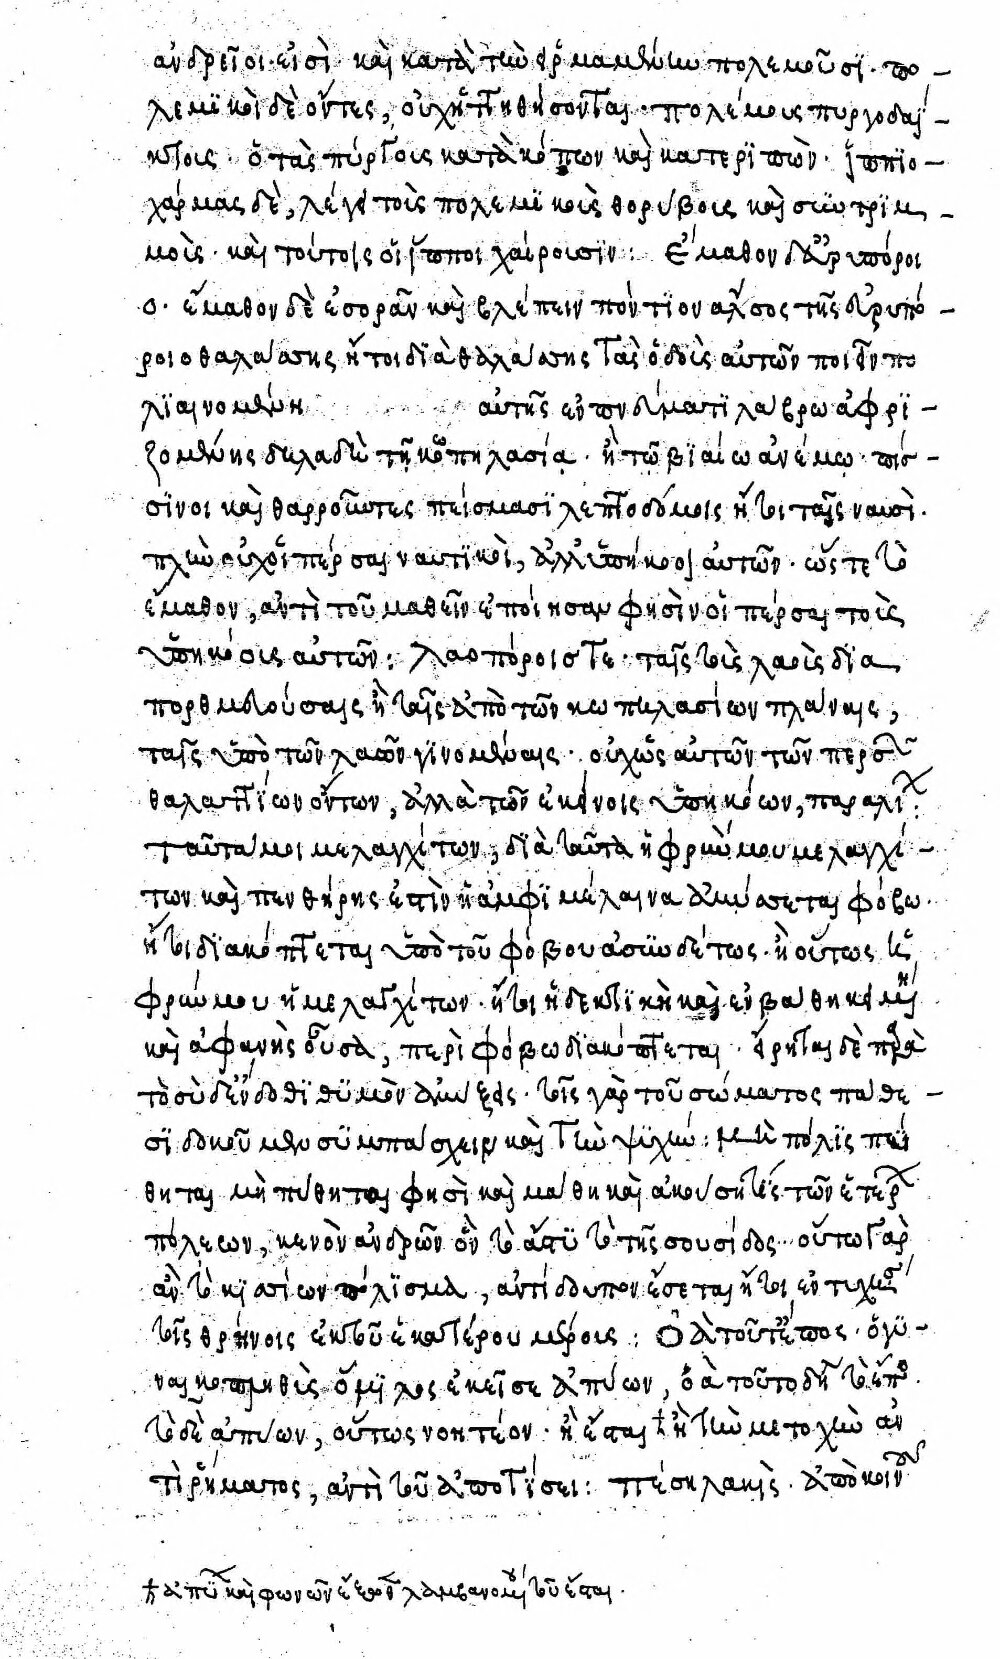 ἀνδρεῖοι εἰσὶ καὶ κατὰ τὴν εἱμαρμένην πολεμοῦσι· πο-
λεμικοὶ δὲ ὄντες, οὐχ ἡττηθήσονται· πολέμοις πυργοδαΐ-
κτοις· ὃ τὰς πύργοις κατακόπτων καὶ κατερίπων· ἱππιο-
χάρμας δὲ, λέγει τοῖς πολεμικοῖς θορύβοις καὶ συντριμ-
μοῖς· καὶ τούτοις οἱ ἵπποι χαίρουσιν: Ἔμαθον δ' εὐρυπόροι
ο· ἔμαθον δὲ ἐσορᾶν καὶ βλέπειν πόντιον ἄλσος τῆς εὐρυπό-
ροιο θαλάσσης ἤτοι διὰ θαλάσσης τὰς ὁδοὺς αὐτῶν ποιεῖν πο
λιαινομένη αὐτῆς ἐν πνεύματι λάβρω ἀφρι-
ζομένης δηλαδὴ τῆ κωπηλασία· ἢ τῶ βιαίω ἀνέμω· πίσ-
σινοι καὶ θαρροῦντες πείσμασι λεπτοδόμοις ἤτοι ταῖς ναυσὶ·
πλὴν οὐχ οἱ πέρσαι ναυτικοὶ, ἀλλ' ὑπήκοοι αὐτῶν· ὥστε τὸ
ἔμαθον, ἀντὶ τοῦ μαθεῖν ἐποίησαν φησὶν οἱ πέρσαι τοῖς
ὑπηκόοις αὐτῶν: λαοπόροις τε· ταῖς τοὺς λαοὺς δια
πορθμευούσαις ἢ ταῖς ἀπὸ τῶν κωπηλασίων πλάναις,
ταῖς ὑπὸ τῶν λαῶν γινομέναις· οὐχ ὡς αὐτῶν τῶν περσῶν
θαλαττίων ὄντων, ἀλλὰ τῶν ἐκείνοις ὑπηκόων, παραλίων:
Ταῦτα μοι μελαγχίτων, διὰ ταῦτα ἡ φρὴν μου μελαγχί-
των καὶ πενθήρης ἐστὶν ἡ ἀμφιμέλαινα ἀμύσσεται φόβω·
ἤτοι διακόπτεται ὑπὸ τοῦ φόβου ἀσυνδέτως· ἢ οὕτως ἡ
φρὴν μου ἡ μελαγχίτων· ἤτοι ἡ δεκτικὴ καὶ ἐν βάθη κειμένη
καὶ ἀφανὴς οὖσα, περὶ φόβω διακόπτεται· εἴρηται δὲ παρὰ
τὸ σὺ δ' ἔνδοθι θυμὸν ἀμύξεις· τοῖς γὰρ τοῦ σώματος πάθε-
σι δοκοῦμεν συμπάσχειν καὶ τὴν ψυχήν: Μὴ πόλις πύ
θηται μὴ πύθηται φησὶ καὶ μάθη καὶ ἀκούση τις τῶν ἑτέρων
πόλεων, κενὸν ἀνδρῶν ὂν τὸ ἄστυ τὸ τῆς σουσίδος· οὕτω γὰρ
ἂν τὸ κισσίων πόλισμα, ἀντίδουπον ἔσεται ἤτοι ἐντυχὸν
τοῖς θρήνοις ἐκ τοῦ ἑκατέρου μέρους: Ὀὰ τοῦτ' ἔπος· ὁ γυ-
ναικοπληθὴς ὅμιλος ἐκεῖσε ἀπύων, ὀὰ τοῦτο δὴ τὸ ἔπος.
τὸ δὲ ἀπύων, οὕτως νοητέον· ἢ ἔσται ἢ τὴν μετοχὴν ἀν
τὶ ῥήματος, ἀντὶ τοῦ ἀποτίσει: Πέση λακὶς· ἀπὸ κοινοῦ
ἀπύων καὶ φωνῶν ἔξωθεν λαμβανομένου τοῦ ἔσται.